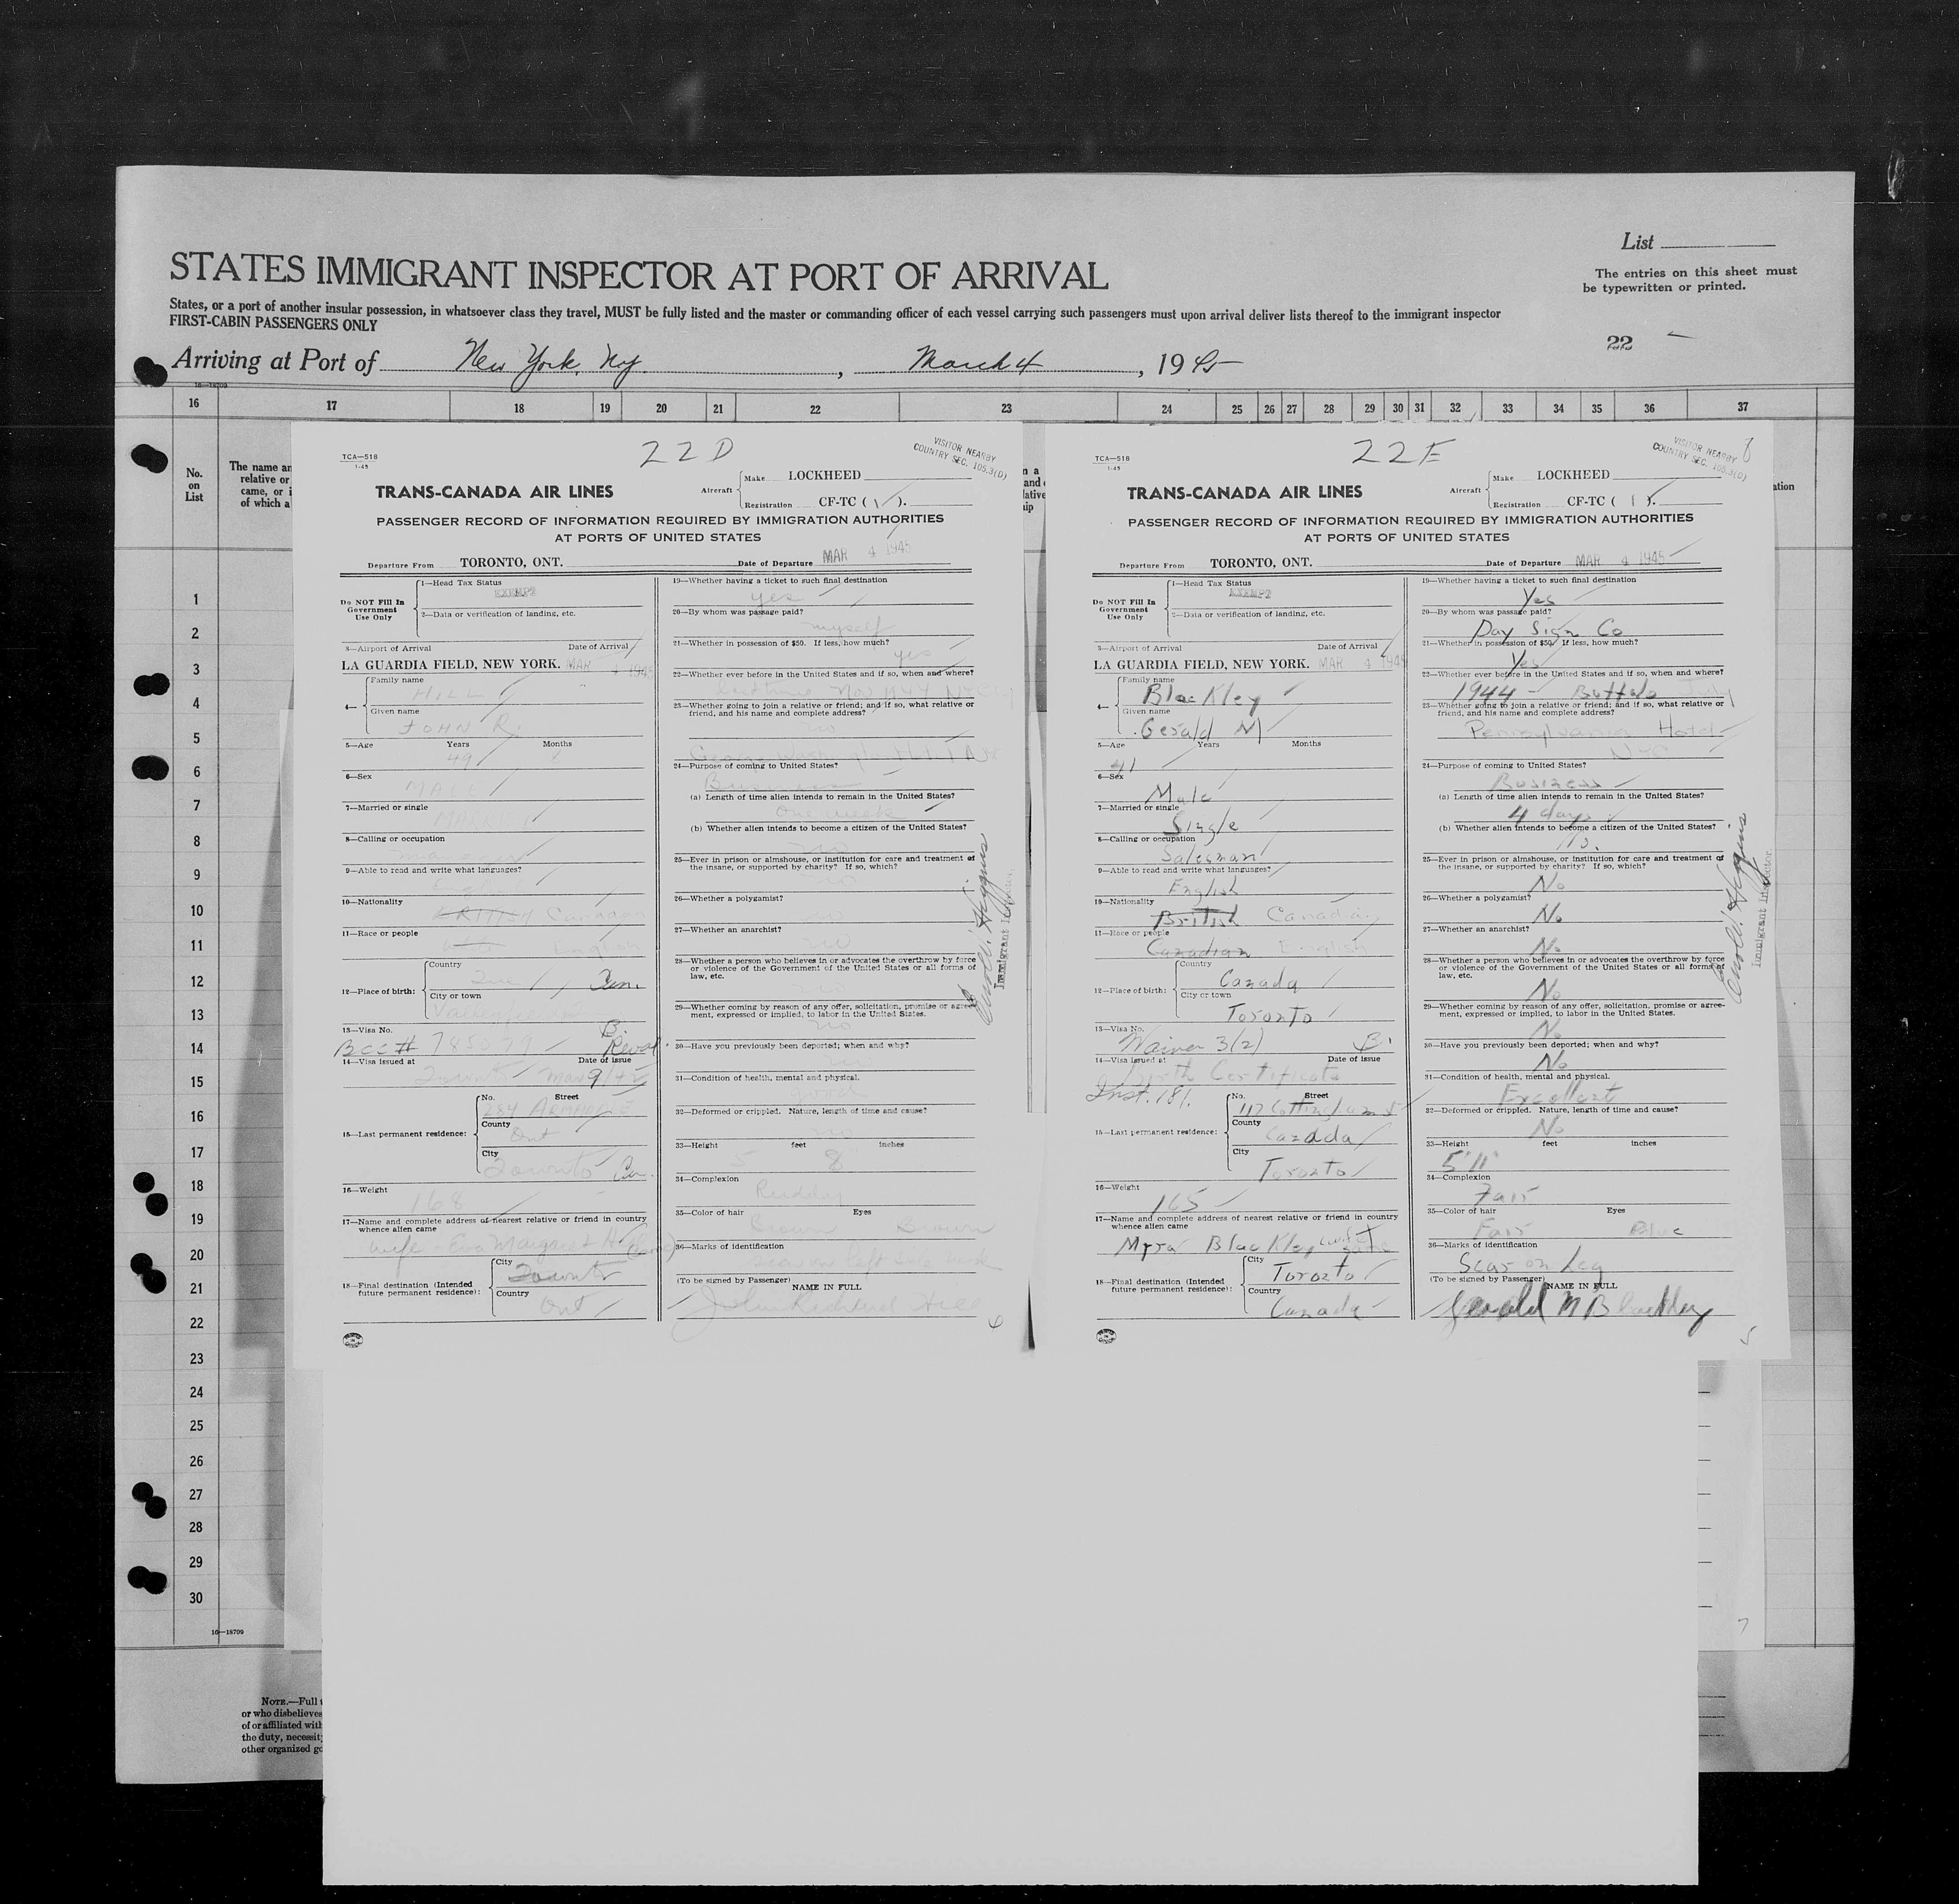 List
STATES IMMIGRANT INSPECTOR AT PORT OF ARRIVAL
The entries on this sheet must
be typewritten or printed.
States, or a port of another insular possession, in whatsoever class they travel, MUST be fully listed and the master or commanding officer of each vessel carrying such passengers must upon arrival deliver lists thereof to the immigrant inspector
FIRST-CABIN PASSENGERS ONLY
22
Arriving at Port of New York, Ny , March 4 , 1945
16-18709
16 17 18 19 20 21 22 23 24 25 26 27 28 29 30 31 32 33 34 35 36 37
No.
on
List
The name an
relative or
came, or i
of which a
1
2
3
4
5
6
7
8
9
10
11
12
13
14
15
16
17
18
19
20
21
22
23
24
25
26
27
28
29
30
16-18709
NOTE.—Full
or who disbelieves
of or affiliated with
the duty, necessit
other organized go
TCA—518
1-45
22D
VISITOR NEARBY
COUNTRY SEC. 105.3(D)
TRANS-CANADA AIR LINES
Aircraft
Make LOCKHEED
Registration CF-TC ( ).
PASSENGER RECORD OF INFORMATION REQUIRED BY IMMIGRATION AUTHORITIES
AT PORTS OF UNITED STATES
Departure From TORONTO, ONT. Date of Departure MAR 4 1945
Do NOT Fill In
Government
Use Only
1—Head Tax Status
EXEMPT
2—Data or verification of landing, etc.
3—Airport of Arrival Date of Arrival
LA GUARDIA FIELD, NEW YORK. MAR 4 1945
4— Family name
HILL
Given name
JOHN R.
5—Age Years Months
49
6—Sex
MALE
7—Married or single
8—Calling or occupation
9—Able to read and write what languages?
10—Nationality
BRITISH Canadian
11—Race or people
English
12—Place of birth: Country
Que Can.
City or town
Valleyfield
13—Visa No. B.
Bcc# 785099 Reval.
14—Visa issued at Date of issue
Toronto Mar 9/45
15—Last permanent residence: No. Street
284
County
Ont
City
Toronto Can.
16—Weight
168
17—Name and complete address of nearest relative or friend in country
whence alien came
wife Eva Margaret Hill
18—Final destination (Intended
future permanent residence): City
Toronto
Country
Ont
19—Whether having a ticket to such final destination
yes
20—By whom was passage paid?
myself
21—Whether in possession of $50. If less, how much?
yes
22—Whether ever before in the United States and if so, when and where?
last time Nov 1944
23—Whether going to join a relative or friend; and if so, what relative or
friend, and his name and complete address?
no
24—Purpose of coming to United States?
Business
(a) Length of time alien intends to remain in the United States?
One week
(b) Whether alien intends to become a citizen of the United States?
no
25—Ever in prison or almshouse, or institution for care and treatment of
the insane, or supported by charity? If so, which?
no
26—Whether a polygamist?
no
27—Whether an anarchist?
no
28—Whether a person who believes in or advocates the overthrow by force
or violence of the Government of the United States or all forms of
law, etc.
no
29—Whether coming by reason of any offer, solicitation, promise or agree-
ment, expressed or implied, to labor in the United States.
no
30—Have you previously been deported; when and why?
no
31—Condition of health, mental and physical.
good
32—Deformed or crippled. Nature, length of time and cause?
no
33—Height feet inches
5 8
34—Complexion
Ruddy
35—Color of hair Eyes
Brown Brown
36—Marks of identification
(To be signed by Passenger) NAME IN FULL
John Richard Hill
6
Immigrant Inspector.
TCA—518
1-45
22E
VISITOR NEARBY
COUNTRY SEC. 105.3(D)
TRANS-CANADA AIR LINES
Aircraft
Make LOCKHEED
Registration CF-TC ( ).
PASSENGER RECORD OF INFORMATION REQUIRED BY IMMIGRATION AUTHORITIES
AT PORTS OF UNITED STATES
Departure From TORONTO, ONT. Date of Departure MAR 4 1945
Do NOT Fill In
Government
Use Only
1—Head Tax Status
EXEMPT
2—Data or verification of landing, etc.
3—Airport of Arrival Date of Arrival
LA GUARDIA FIELD, NEW YORK. MAR 4 1945
4— Family name
Blackley
Given name
Gerald M
5—Age Years Months
41
6—Sex
Male
7—Married or single
Single
8—Calling or occupation
Salesman
9—Able to read and write what languages?
English
10—Nationality
British Canadian
11—Race or people
Canadian English
12—Place of birth: Country
Canada
City or town
Toronto
13—Visa No.
Waiver 3(2) B.
14—Visa issued at Date of issue
Birth Certificate
Inst. 181.
15—Last permanent residence: No. Street
117 Cottingham St
County
Canada
City
Toronto
16—Weight
165
17—Name and complete address of nearest relative or friend in country
whence alien came
Myra Blackley
18—Final destination (Intended
future permanent residence): City
Toronto
Country
Canada
19—Whether having a ticket to such final destination
Yes
20—By whom was passage paid?
Day Sign Co
21—Whether in possession of $50. If less, how much?
Yes
22—Whether ever before in the United States and if so, when and where?
1944 - Buffalo
23—Whether going to join a relative or friend; and if so, what relative or
friend, and his name and complete address?
Pennsylvania Hotel
NYC
24—Purpose of coming to United States?
Business
(a) Length of time alien intends to remain in the United States?
4 days
(b) Whether alien intends to become a citizen of the United States?
No.
25—Ever in prison or almshouse, or institution for care and treatment of
the insane, or supported by charity? If so, which?
No
26—Whether a polygamist?
No
27—Whether an anarchist?
No
28—Whether a person who believes in or advocates the overthrow by force
or violence of the Government of the United States or all forms of
law, etc.
No
29—Whether coming by reason of any offer, solicitation, promise or agree-
ment, expressed or implied, to labor in the United States.
No
30—Have you previously been deported; when and why?
No
31—Condition of health, mental and physical.
Excellent
32—Deformed or crippled. Nature, length of time and cause?
No
33—Height feet inches
5'11"
34—Complexion
Fair
35—Color of hair Eyes
Fair Blue
36—Marks of identification
Scar on Leg
(To be signed by Passenger) NAME IN FULL
Gerald M Blackley
5
Immigrant Inspector.
7